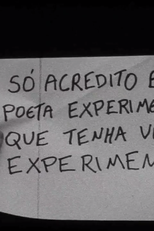 SÓ ACREDITO E
POETA EXPERIME
QUE TENHA VI
EXPERIMEN